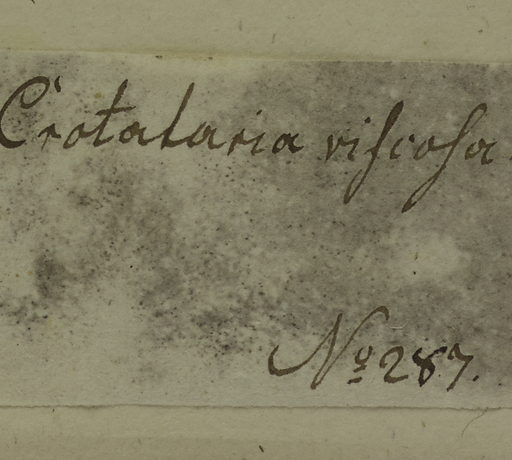 Crotalaria viſcoſa.
Nọ 287.